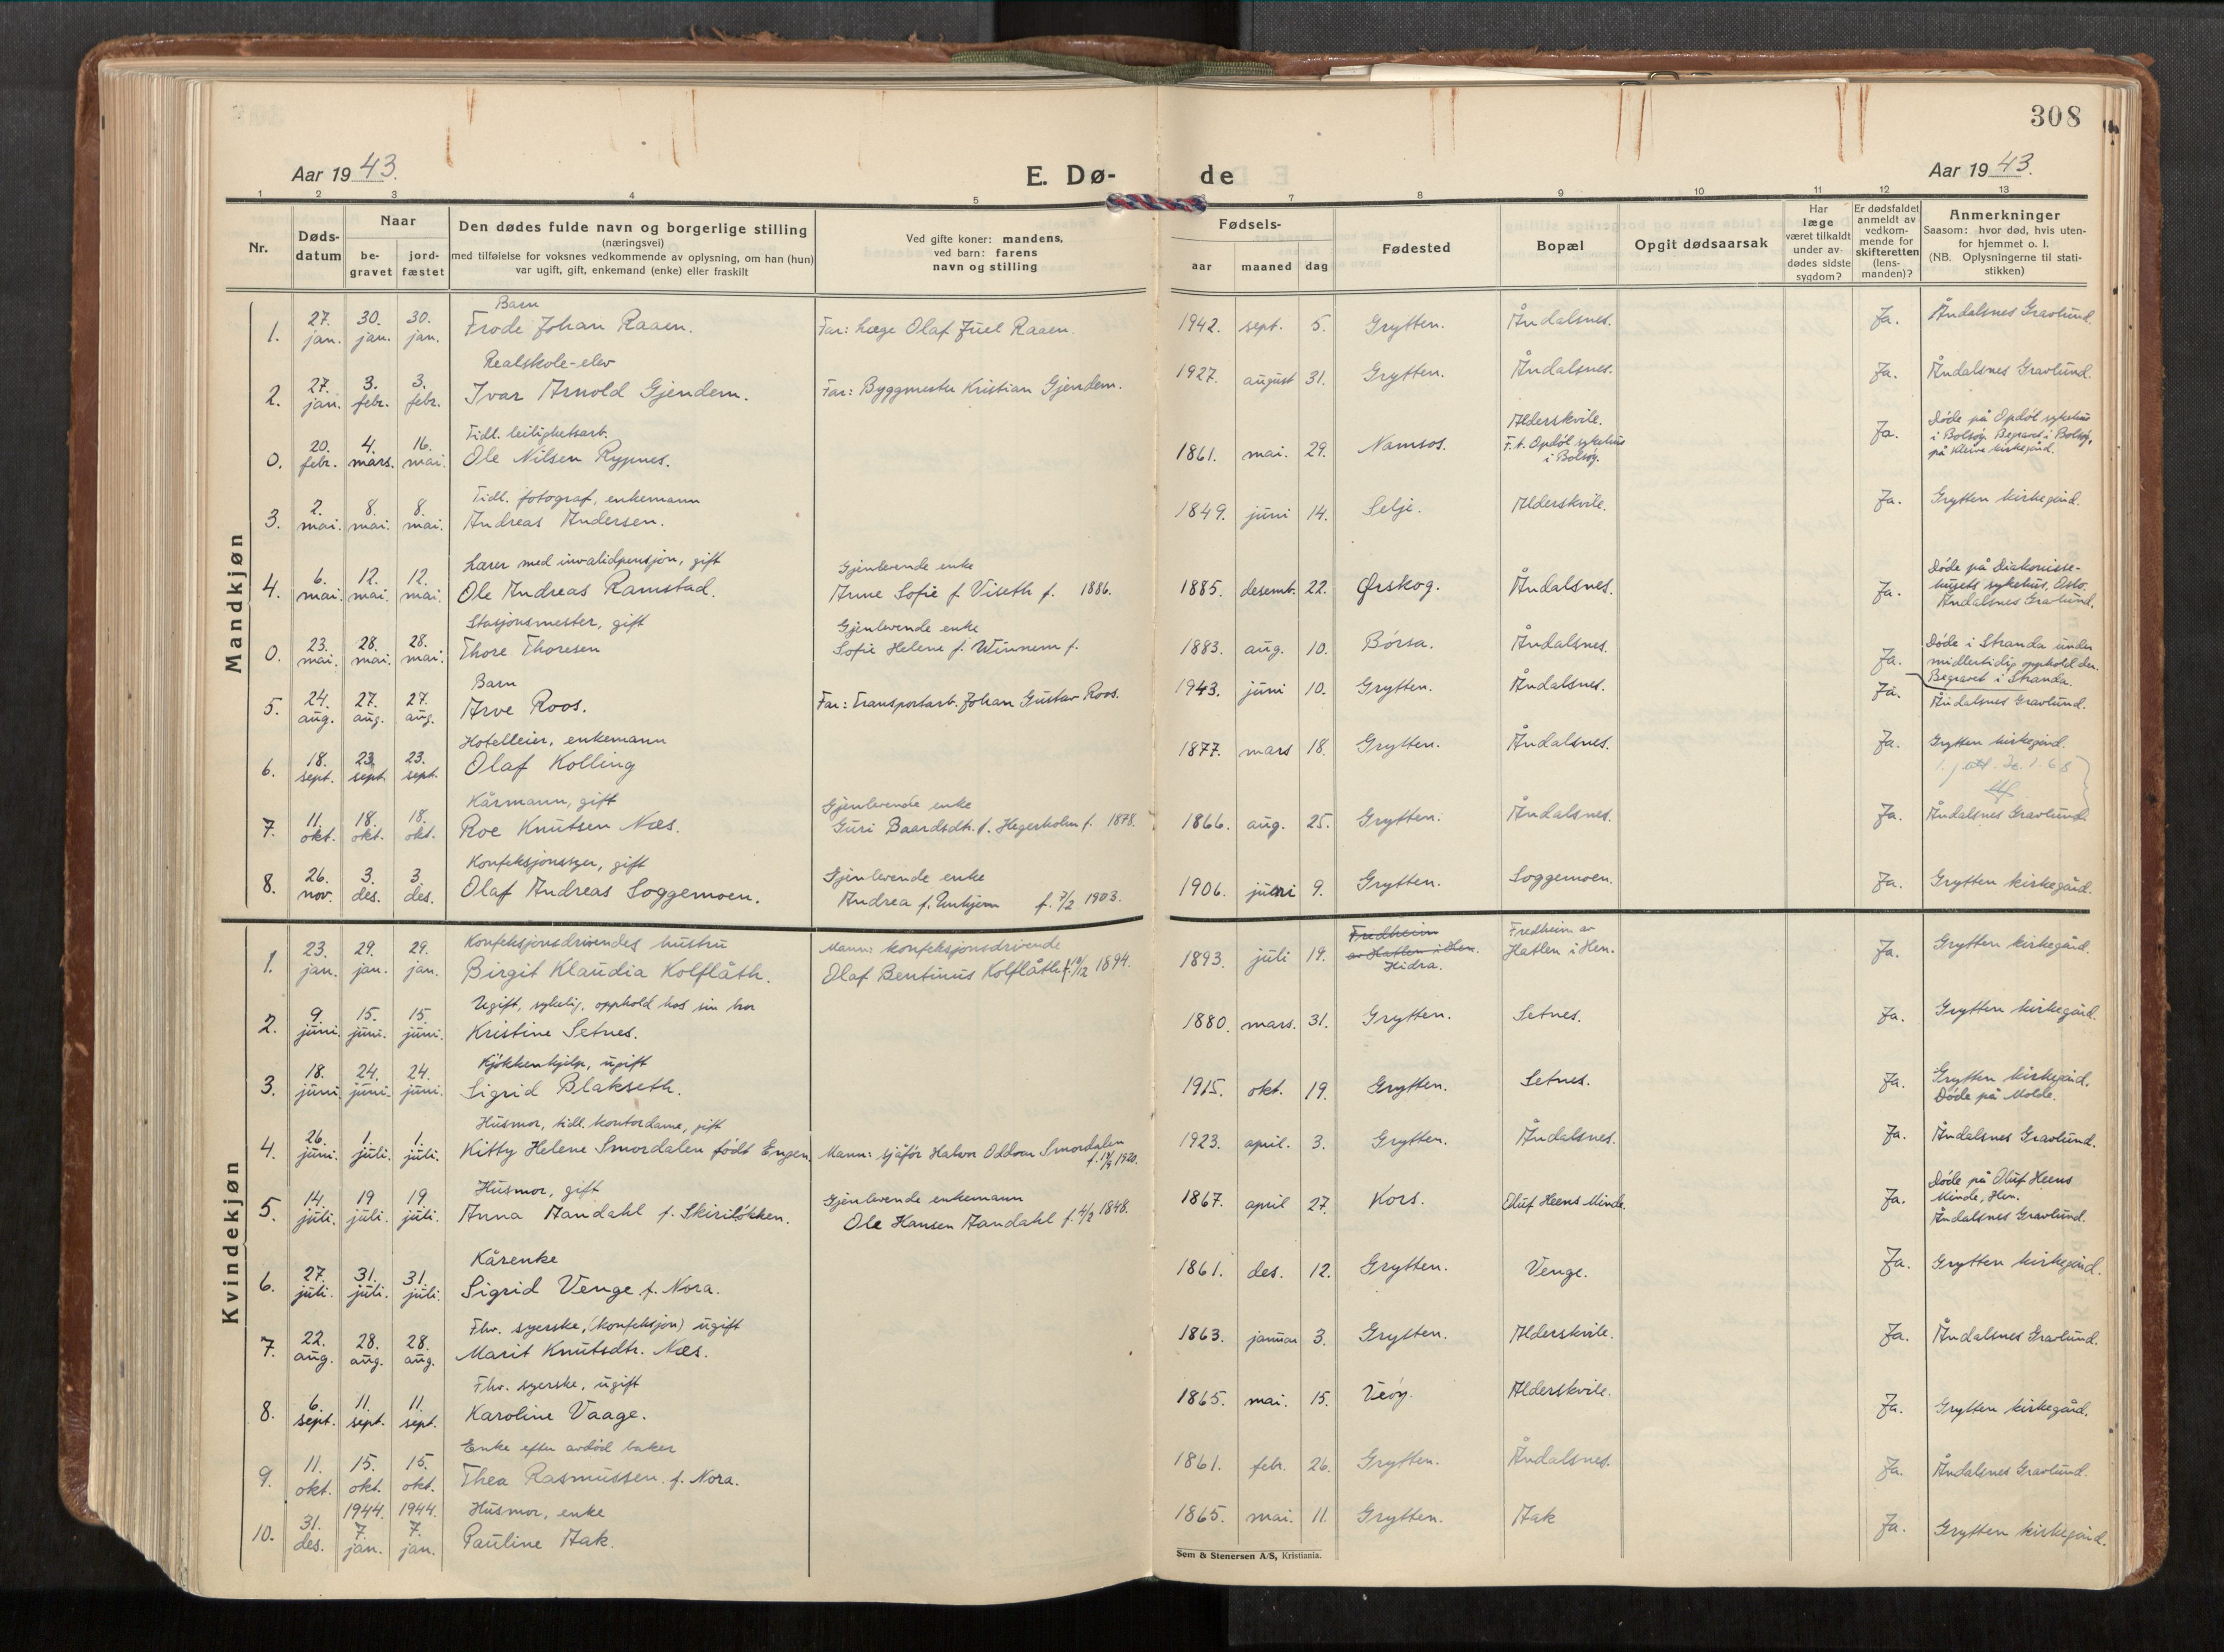 308
Aar 1943.
E. Dø-
de
Aar 1943.
1 2 3 4 5 7 8 9 10 11 12 13
Nr.
Døds-
datum
Naar
be-
gravet
jord-
fæstet
Den dødes fulde navn og borgerlige stilling
(næringsvei)
med tilføielse for voksnes vedkommende av oplysning, om han (hun)
var ugift, gift, enkemand (enke) eller fraskilt
Ved gifte koner: mandens,
ved barn: farens
navn og stilling
Fødsels-
aar maaned dag
Fødested
Bopæl
Opgit dødsaarsak
Har
læge
været tilkaldt
under av-
dødes sidste
sygdom?
Er dødsfaldet
anmeldt av
vedkom-
mende for
skifteretten
(lens-
manden)?
Anmerkninger
Saasom: hvor død, hvis uten-
for hjemmet o. l.
(NB. Oplysningerne til stati-
stikken)
Mandkjøn
Barn
1. 27. jan. 30. jan. 30. jan. Frode Johan Raaen. Far: Læge Olaf Juel Raaen. 1942. sept. 5. Grytten. Åndalsnes. Ja. Åndalsnes Gravlund.
Realskole-elev
2. 27. jan. 3. febr. 3. febr. Ivar Arnold Gjendem. Far: Byggmester Kristian Gjendem. 1927. august 31. Grytten. Åndalsnes. Ja. Åndalsnes Gravlund.
Tidl. leilighetsarb.
0. 20. febr. 4. mars. 16. mai. Ole Nilsen Rypnes. 1861. mai. 29. Namsos. Alderskvile.
F.t. Opdøl sykehus
i Bolsøy.
Ja. Døde på Opdøl sykehus
i Bolsøy. Begravet i Bolsøy,
på Kleive kirkegård.
Tidl. fotograf, enkemann
3. 2. mai. 8. mai. 8. mai. Andreas Andersen. 1849. juni 14. Selje. Alderskvile. Ja. Grytten kirkegård.
Lærer med invalidpensjon, gift
Gjenlevende enke
4. 6. mai. 12. mai. 12. mai. Ole Andreas Ramstad. Anne Sofie f. Viseth f. 1886. 1885. desemb. 22. Ørskog. Åndalsnes. Ja. Døde på Diakonisse-
husets sykehus, Oslo.
Åndalsnes Gravlund.
Stasjonsmester, gift
Gjenlevende enke
0. 23. mai. 28. mai. 28. mai. Thore Thoresen Sofie Helene f. Winnem f. 1883. aug. 10. Børsa. Åndalsnes. Ja. Døde i Stranda under
midlertidig opphold der.
Begravet i Stranda.
Barn
5. 24. aug. 27. aug. 27. aug. Arve Roos. Far: Transportarb. Johan Gustav Roos. 1943. juni 10. Grytten. Åndalsnes. Ja. Åndalsnes Gravlund.
Hotelleier, enkemann
6. 18. sept. 23. sept. 23. sept. Olaf Kolling 1877. mars 18. Grytten. Åndalsnes. Ja. Grytten kirkegård.
Kårmann, gift
Gjenlevende enke
7. 11. okt. 18. okt. 18. okt. Roe Knutsen Næs. Guri Baardsdtr. f. Hegerholm f. 1878. 1866. aug. 25. Grytten. Åndalsnes. Ja. Åndalsnes Gravlund.
Konfeksjonssyer, gift
Gjenlevende enke
8. 26. nov. 3. des. 3. des. Olaf Andreas Soggemoen. Andrea f. Unhjem f. 7/2 1903. 1906. juni 9. Grytten. Soggemoen. Ja. Grytten kirkegård.
Kvindekjøn
Konfeksjonsdrivendes hustru
Mann: konfeksjonsdrivende
1. 23. jan. 29. jan. 29. jan. Birgit Klaudia Kolflåth. Olaf Bentinus Kolflåth f. 19/12 1894. 1893. juli 19. Fredheim
av Hatlen i Hen.
Hidra.
Fredheim av
Hatlen i Hen.
Ja. Grytten kirkegård.
Ugift, sykelig, opphold hos sin bror
2. 9. juni. 15. juni. 15. juni. Kristine Setnes. 1880. mars. 31. Grytten. Setnes. Ja. Grytten kirkegård.
Kjøkkenhjelp, ugift
3. 18. juni 24. juni. 24. juni. Sigrid Blakseth. 1915. okt. 19. Grytten. Setnes. Ja. Grytten kirkegård.
Døde på Molde.
Husmor, tidl. kontordame, gift
4. 26. juni. 1. juli. 1. juli. Kitty Helene Smordalen født Engen. Mann: sjåfør Halvor Oddvar Smordalen
1920. 1923. april. 3. Grytten. Åndalsnes. Ja. Åndalsnes Gravlund.
Husmor, gift
Gjenlevende enkemann
5. 14. juli. 19 juli. 19. juli. Anna Aandahl f. Skiriløkken. Ole Hansen Aandahl f. 4/2 1848. 1867. april 27. Kors. Oluf Heens Minde. Ja. Døde på Oluf Heens
Minde, Hen.
Åndalsnes Gravlund.
Kårenke
6. 27. juli. 31. juli. 31. juli. Sigrid Venge f. Nora. 1861. des. 12. Grytten. Venge. Ja. Grytten kirkegård.
Fhv. syerske, (konfeksjon) ugift
7. 22. aug. 28. aug. 28. aug. Marit Knutsdtr. Næs. 1863. januar 3. Grytten. Alderskvile. Ja. Åndalsnes Gravlund.
Fhv. syerske, ugift
8. 6. sept. 11. sept. 11. sept. Karoline Vaage. 1865. mai. 15. Veøy. Alderskvile. Ja. Grytten kirkegård.
Enke efter avdød baker
9. 11. okt. 15. okt. 15. okt. Thea Rasmussen f. Nora. 1861. febr. 26. Grytten. Åndalsnes. Ja. Åndalsnes Gravlund.
Husmor, enke
10. 31. des. 1944. 7. jan. 1944. 7. jan. Pauline Aak. 1865. mai. 11. Grytten. Aak Ja. Grytten kirkegård.
Sem & Stenersen A/S, Kristiania.